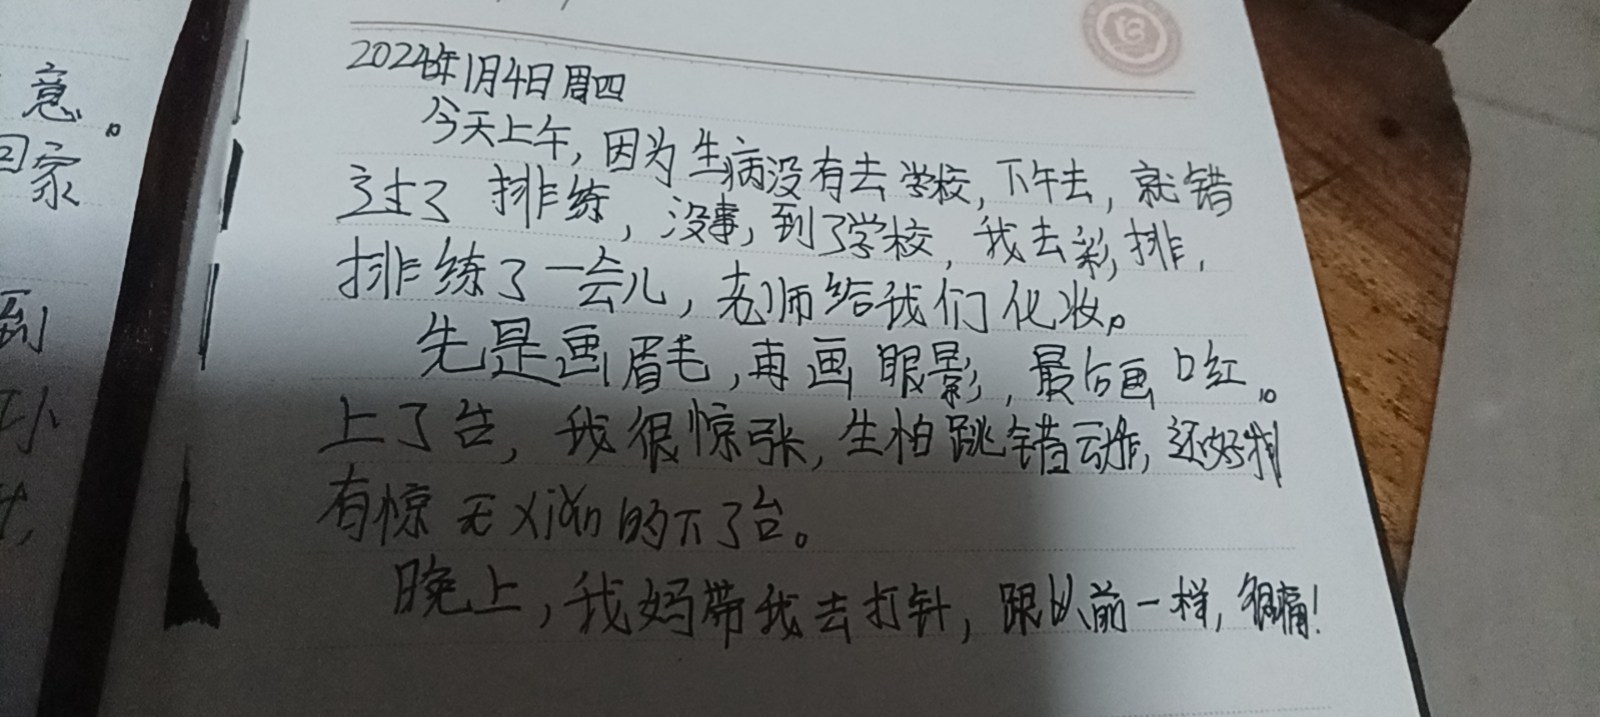 意。
回家
到
小
2024年1月4日周四
今天上午,因为生病没有去学校,下午去,就错
过了排练,没事,到了学校,我去彩排,
排练了一会儿,老师给我们化妆。
先是画眉毛,再画眼影,最后画口红。
上了台,我很惊张,生怕跳错动作,还好我
有惊无xiǎn的下了台。
晚上,我妈带我去打针,跟以前一样,很痛!